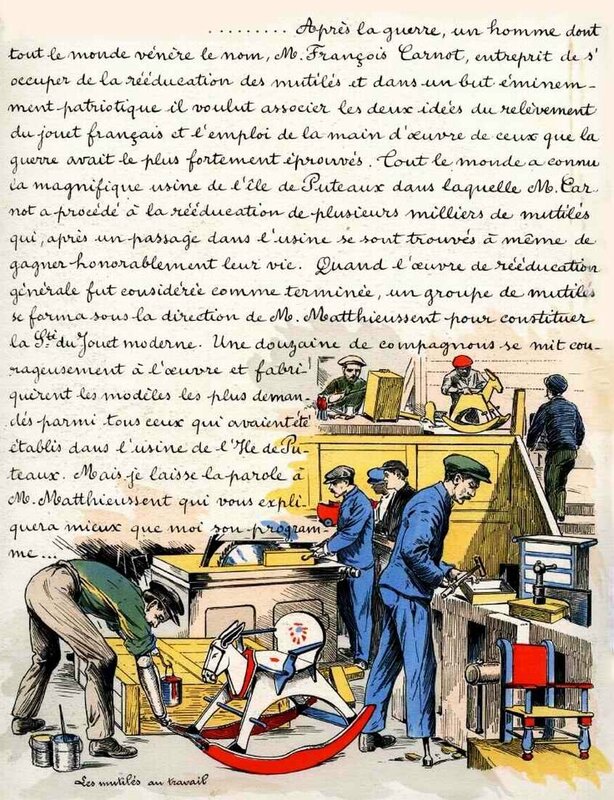 ......... Après la guerre, un homme dont
tout le monde vénère le nom, M. François Carnot, entreprit de s'
occuper de la rééducation des mutilés et dans un but éminem-
ment patriotique il voulut associer les deux idées du relèvement
du jouet français et l'emploi de la main d'œuvre de ceux que la
guerre avait le plus fortement éprouvés. Tout le monde a connu
la magnifique usine de l'île de Puteaux dans laquelle M. Car
not a procédé à la rééducation de plusieurs milliers de mutilés
qui, après un passage dans l'usine se sont trouvés à même de
gagner honorablement leur vie. Quand l'œuvre de rééducation
générale fut considérée comme terminée, un groupe de mutilés
se forma sous la direction de M. Matthieussent pour constituer
la Sté du Jouet moderne. Une douzaine de compagnons se mit cou-
rageusement à l'œuvre et fabri-
quèrent les modèles les plus deman-
dés parmi tous ceux qui avaient été
établis dans l'usine de l'Ile de Pu-
teaux. Mais je laisse la parole à
M. Matthieussent qui vous expli-
quera mieux que moi son program-
me ...
Les mutilés au travail